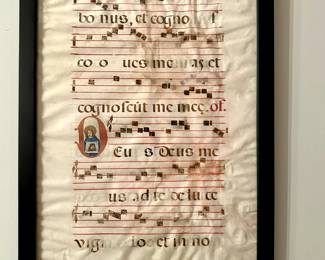 bo nus, et cogno
co o ues me as et
cognoscūt me meę. of.
Eu s Deus me
us ad te de lu ce
vigi lo et in no